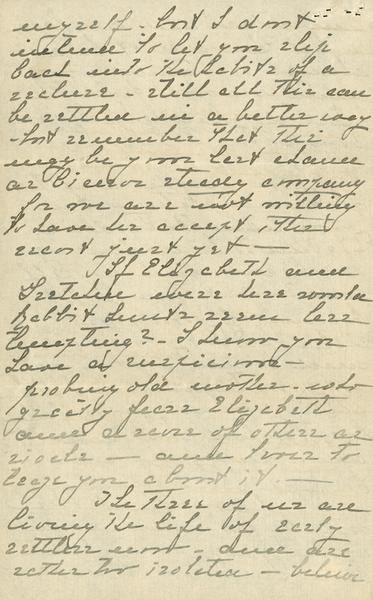 myself - but I don't
intend to let you slip
back into the habits of a
recluse - still all this can
be settled in a better way
- but remember that this
may be your last chance
at Eleanor's steady company
for we are not willing
to have her accept, this
escort just yet -
If Elizabeth and
Gretchen were here would
Rabbit hunts seem less
tempting? - I know you
have a suspicious -
probing old mother - who
greatly fears Elizabeth
and a score of others as
rivals - and loves to
tease you about it. -
The three of us are
living the life of early
settlers now - and are
rather too isolated - believe